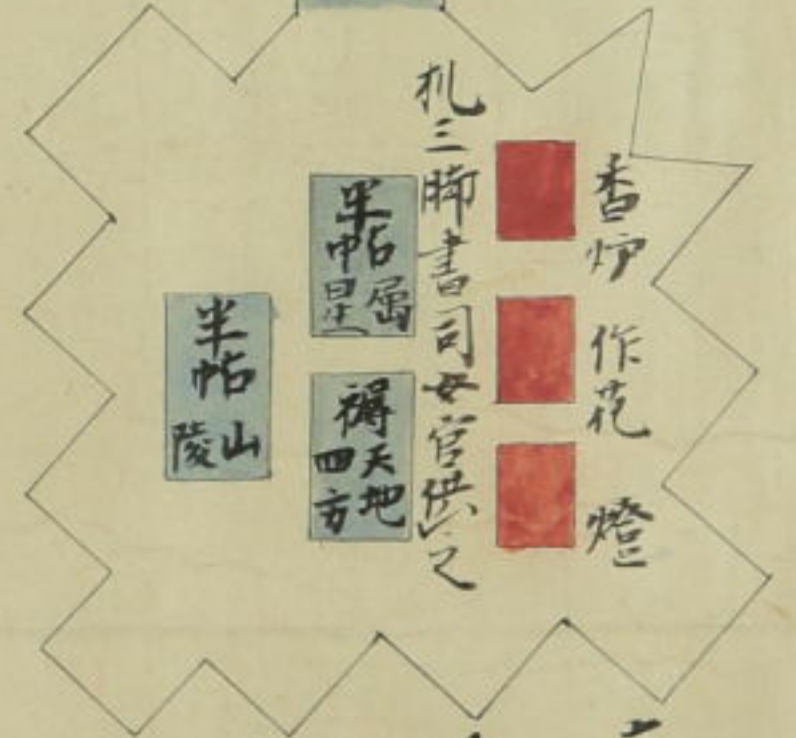 香炉
作花
燈
机三脚書司女官供之
半帖
属星
褥
天地
四方
半帖
山陵